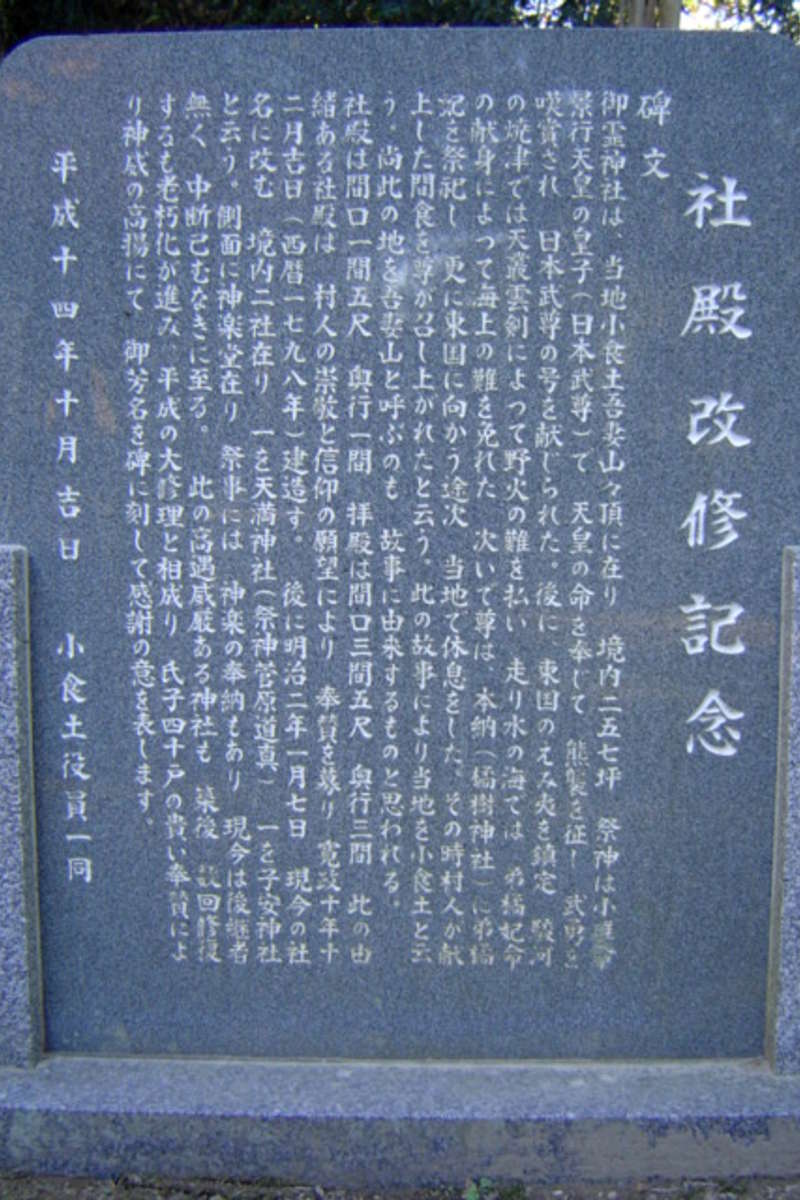 社殿改修記念
碑文
御霊神社は、当地小食土吾妻山々頂に在り 境内二五七坪 祭神は小碓命
景行天皇の皇子(日本武尊)で 天皇の命を奉じて 熊襲を征し 武勇を
嘆賞され 日本武尊の号を献じられた。後に 東国のえみ夷を鎮定 駿河
の焼津では天叢雲剣によつて野火の難を払い 走り水の海では 弟橘妃命
の献身によつて海上の難を免れた 次いで尊は、本納(橘樹神社)に弟橘
妃を祭祀し 更に東国に向かう途次 当地で休息をした。その時村人が献
上した間食を尊が召し上がれたと云う。此の故事により当地を小食土と云
う。尚此の地を吾妻山と呼ぶのも 故事に由来するものと思われる。
社殿は間口一間五尺 奥行一間 拝殿は間口三間五尺 奥行三間 此の由
緒ある社殿は 村人の崇敬と信仰の願望により 奉賛を募り 寛政十年十
二月吉日(西暦一七九八年)建造す。 後に明治二年一月七日 現今の社
名に改む 境内二社在り 一を天満神社(祭神菅原道真) 一を子安神社
と云う。側面に神楽堂在り 祭事には 神楽の奉納もあり 現今は後継者
無く 中断己むなきに至る。 此の高遇威厳ある神社も 築後 数回修復
するも老朽化が進み、平成の大修理と相成り 氏子四十戸の貴い奉賛によ
り神威の高揚にて 御芳名を碑に刻して感謝の意を表します。
平成十四年十月吉日 小食土役員一同